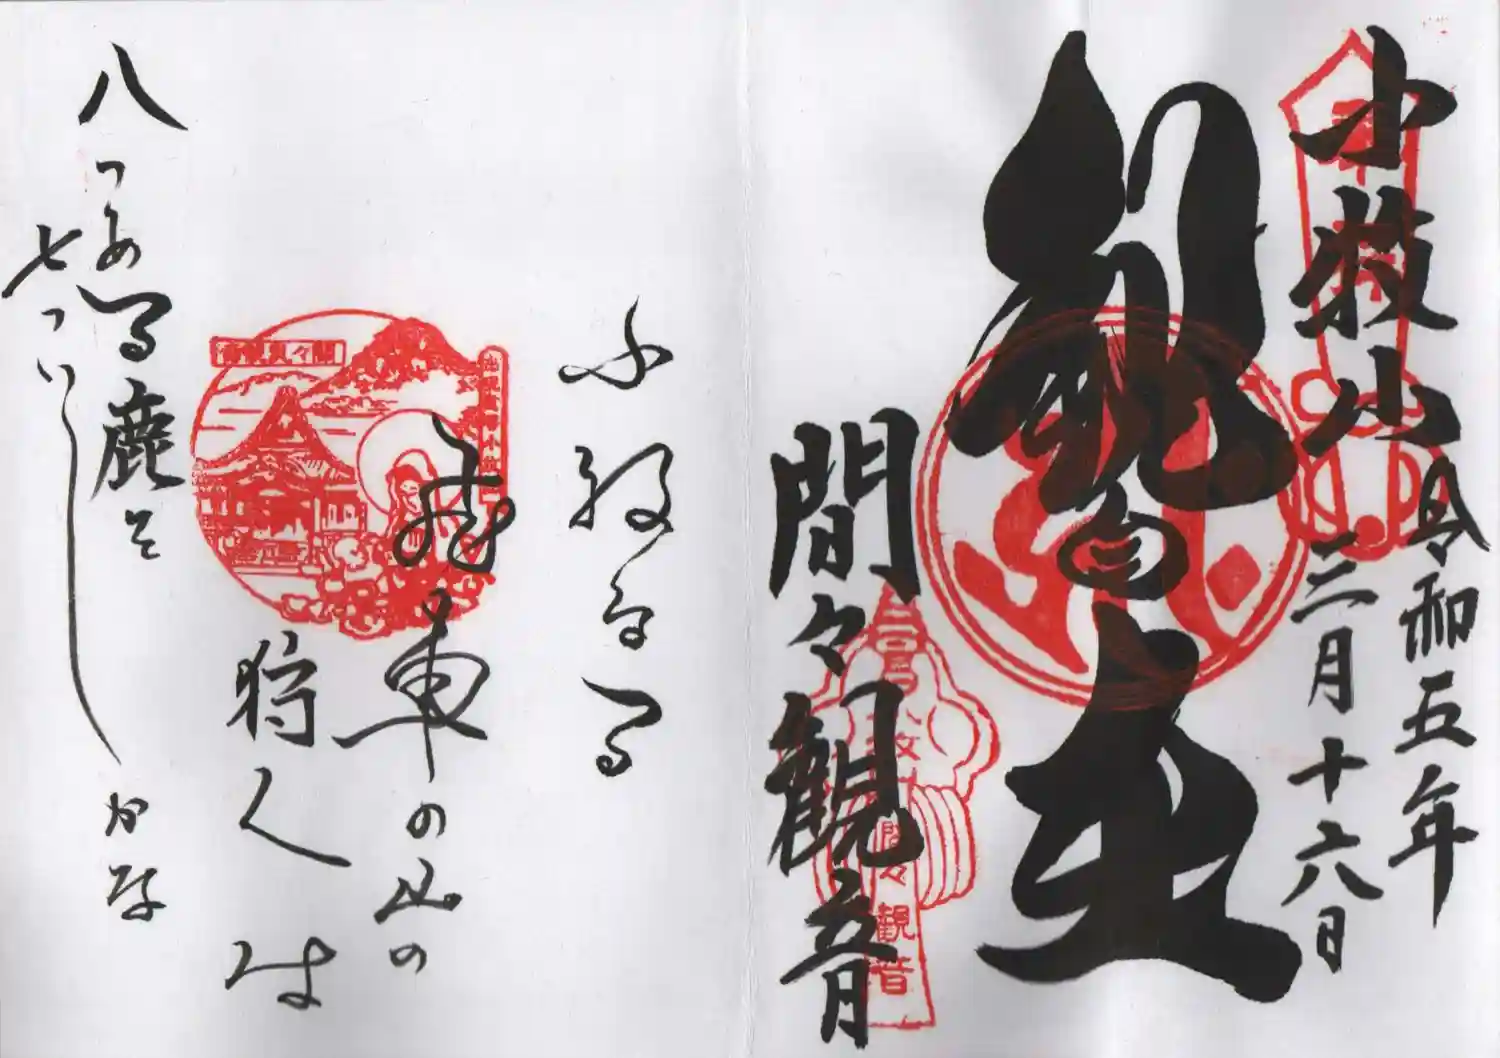 小牧山
令和五年
三月十六日
観音
間々観音
小牧
間々観音
小牧なる
飛車の山の
狩人は
八つある鹿を
七ついしかな